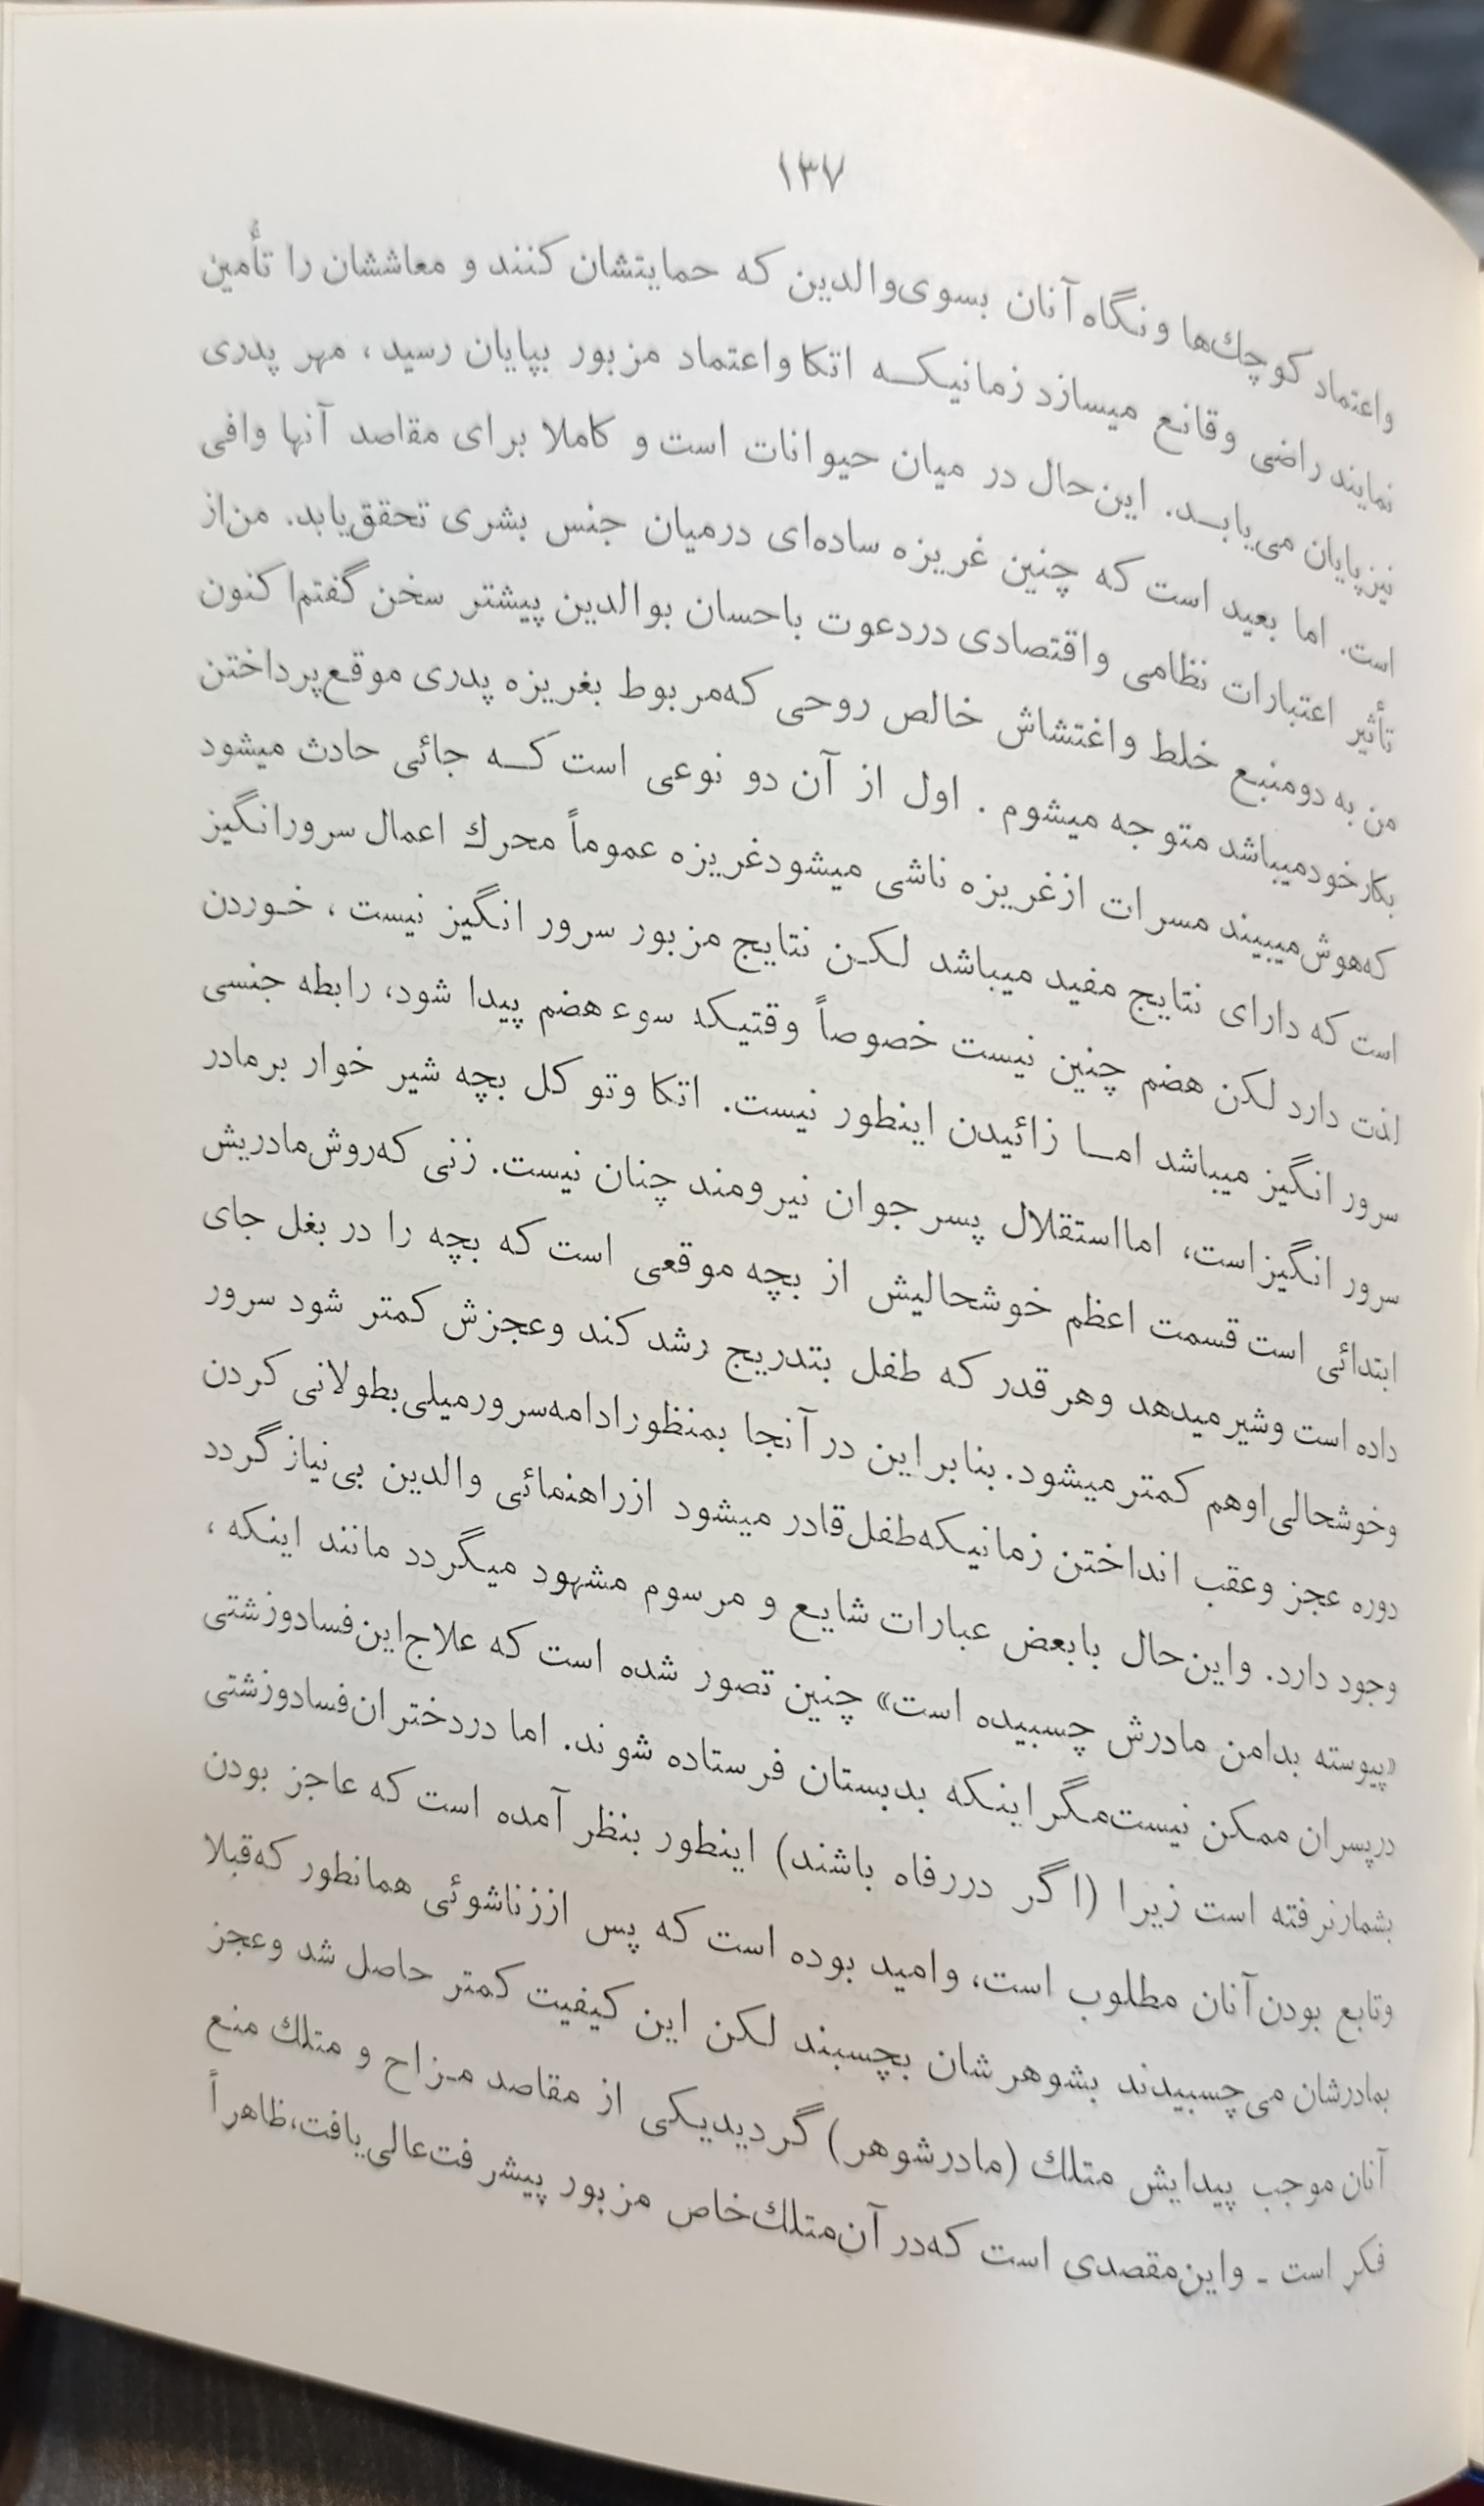 ۱۳۷
واعتماد کوچك‌ها ونگاه آنان بسوی‌والدین که حمایتشان کنند و معاششان را تأمین
نمایند راضی وقانع میسازد زمانیکه اتکا واعتماد مزبور بپایان رسید ، مهر پدری
نیزپایان می‌یابد. این‌حال در میان حیوانات است و کاملا برای مقاصد آنها وافی
است. اما بعید است که چنین غریزه ساده‌ای درمیان جنس بشری تحقق‌یابد. من‌از
تأثیر اعتبارات نظامی واقتصادی دردعوت باحسان بوالدین پیشتر سخن گفتم‌اکنون
من به دومنبع خلط واغتشاش خالص روحی که‌مربوط بغریزه پدری موقع‌پرداختن
بکارخودمیباشد متوجه میشوم . اول از آن دو نوعی است که جائی حادث میشود
که‌هوش‌میبیند مسرات ازغریزه ناشی میشودغریزه عموماً محرك اعمال سرورانگیز
است که دارای نتایج مفید میباشد لکن نتایج مزبور سرور انگیز نیست ، خوردن
لذت دارد لکن هضم چنین نیست خصوصاً وقتیکه سوء هضم پیدا شود، رابطه جنسی
سرور انگیز میباشد اما زائیدن اینطور نیست. اتکا وتوکل بچه شیر خوار برمادر
سرور انگیزاست، امااستقلال پسر جوان نیرومند چنان نیست. زنی که‌روش‌مادریش
ابتدائی است قسمت اعظم خوشحالیش از بچه موقعی است که بچه را در بغل جای
داده است وشیر میدهد وهر قدر که طفل بتدریج رشد کند وعجزش کمتر شود سرور
وخوشحالی‌اوهم کمتر میشود. بنابراین در آنجا بمنظورادامه‌سرورمیلی‌بطولانی کردن
دوره عجز وعقب انداختن زمانیکه‌طفل‌قادر میشود ازراهنمائی والدین بی‌نیاز گردد
وجود دارد. واین‌حال بابعض عبارات شایع و مرسوم مشهود میگردد مانند اینکه ،
«پیوسته بدامن مادرش چسبیده است» چنین تصور شده است که علاج‌این‌فسادوزشتی
درپسران ممکن نیست‌مگر اینکه بدبستان فرستاده شوند. اما دردختران‌فسادوزشتی
بشمارنرفته است زیرا (اگر دررفاه باشند) اینطور بنظر آمده است که عاجز بودن
وتابع بودن‌آنان مطلوب است، وامید بوده است که پس اززناشوئی همانطور که‌قبلا
بمادرشان می‌چسبیدند بشوهر شان بچسبند لکن این کیفیت کمتر حاصل شد وعجز
آنان موجب پیدایش متلك (مادرشوهر) گردیدیکی از مقاصد مزاح و متلك منع
فکر است ـ واین‌مقصدی است که‌در آن‌متلك‌خاص مزبور پیشرفت‌عالی‌یافت،ظاهراً